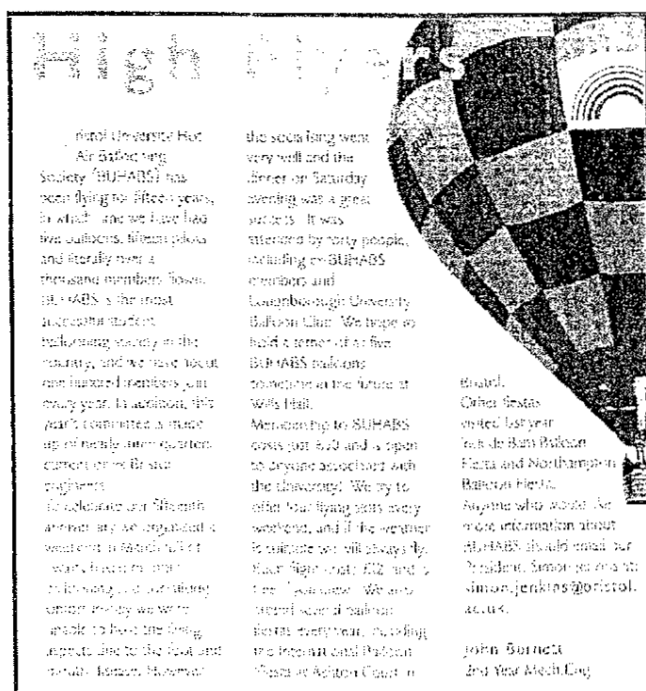 High Flyers
ristol University Hot
Air Ballooning
Society (BUHABS) has
been flying for fifteen years,
in which time we have had
five balloons, fifteen pilots
and literally over a
thousand members flown.
BUHABS is the most
successful student
ballooning society in the
country, and we have about
one hundred members join
every year. In addition, this
year's committee is made
up of nearly three quarters
current or ex Bristol
engineers.
To celebrate our fifteenth
anniversary we organised a
weekend in March full of
ballooning and socialising.
Unfortunately we were
unable to hold the flying
aspects due to the foot and
mouth disease. However
the socialising went
very well and the
dinner on Saturday
evening was a great
success. It was
attended by forty people,
including ex-BUHABS
members and
Loughborough University
Balloon Club. We hope to
hold a tether of all five
BUHABS balloons
sometime in the future at
Wills Hall.
Membership to BUHABS
costs just £20 and is open
to anyone associated with
the University! We try to
offer four flying slots every
weekend, and if the weather
is suitable we will always fly.
Each flight costs £12 and is
We also
attend several balloon
fiestas every year, including
the International Balloon
Fiesta at Ashton Court in
Bristol.
Other fiestas
visited last year
include Bath Balloon
Fiesta and Northampton
Balloon Fiesta.
Anyone who would like
more information about
BUHABS should email our
President, Simon Jenkins at:
simon.jenkins@bristol.
ac.uk.
John Burnett
2nd Year Mech.Eng